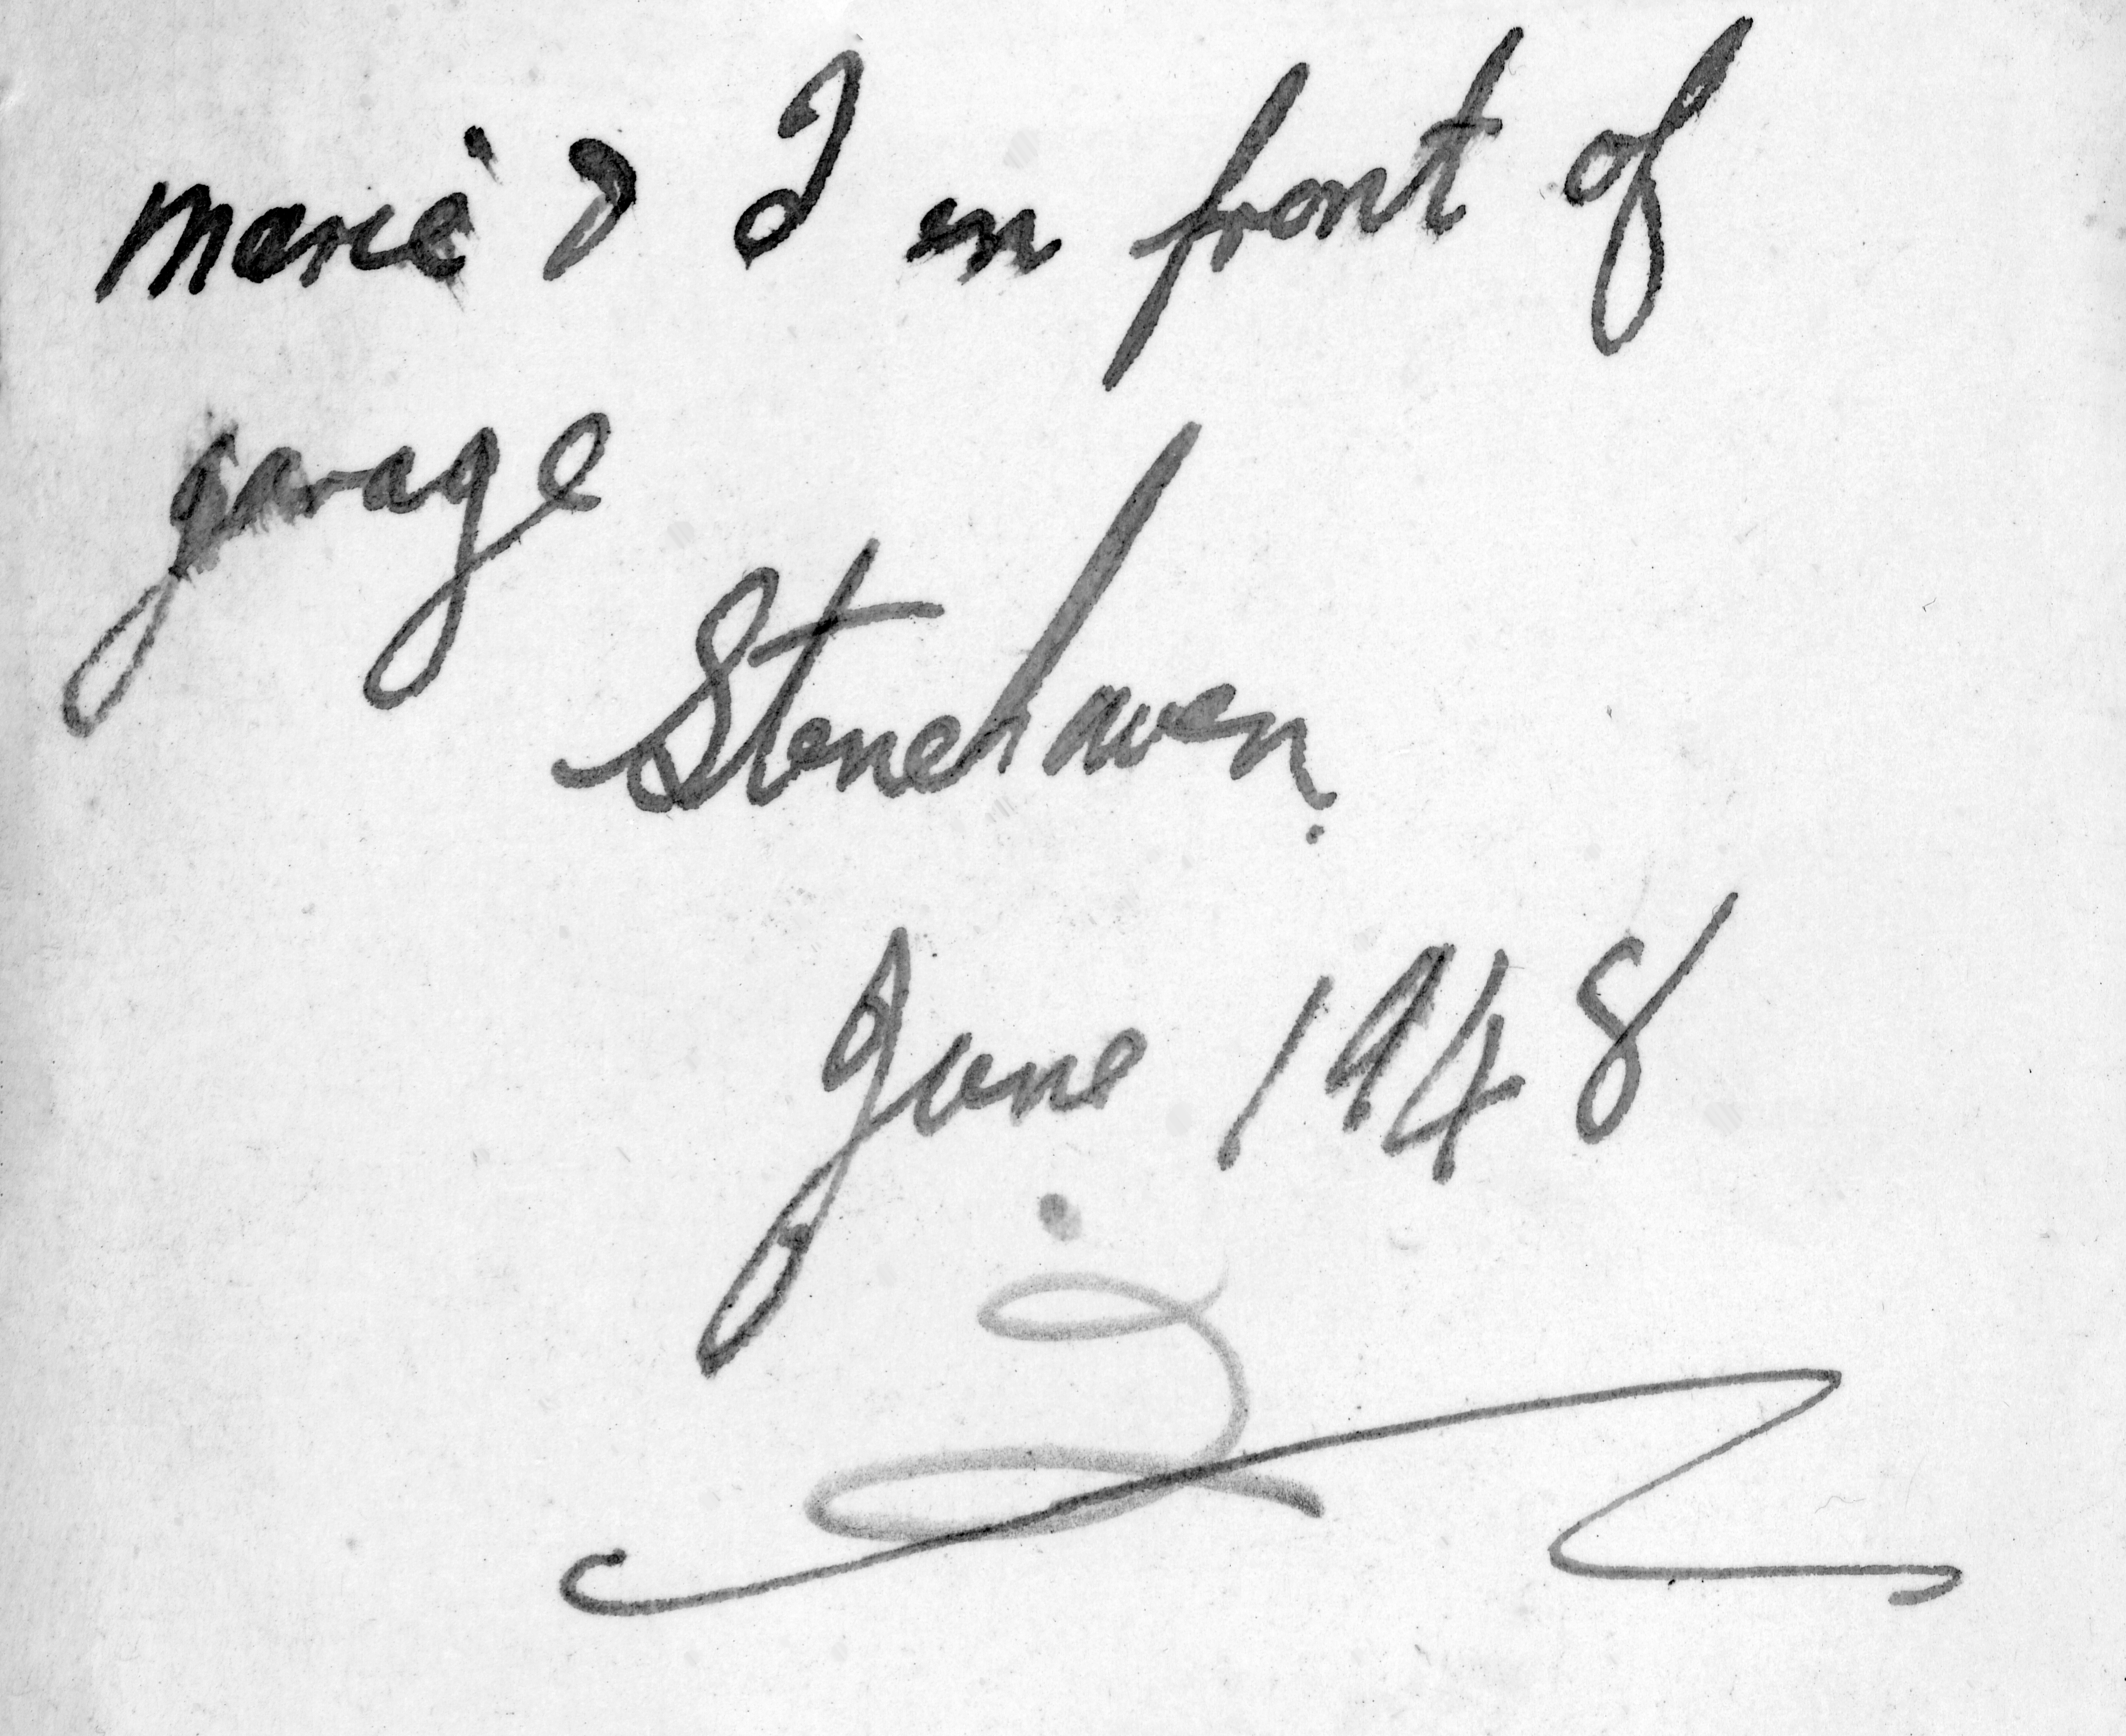 Marie & I in front of
garage
Stonehaven.
June 1948
2